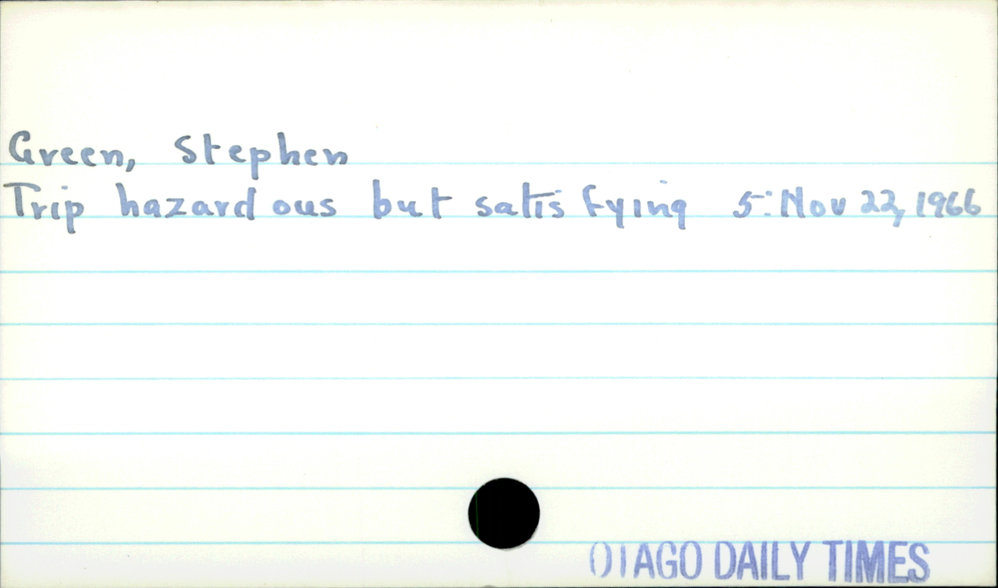 Green, Stephen
Trip hazardous but satisfying 5: Nov 22, 1966
OTAGO DAILY TIMES